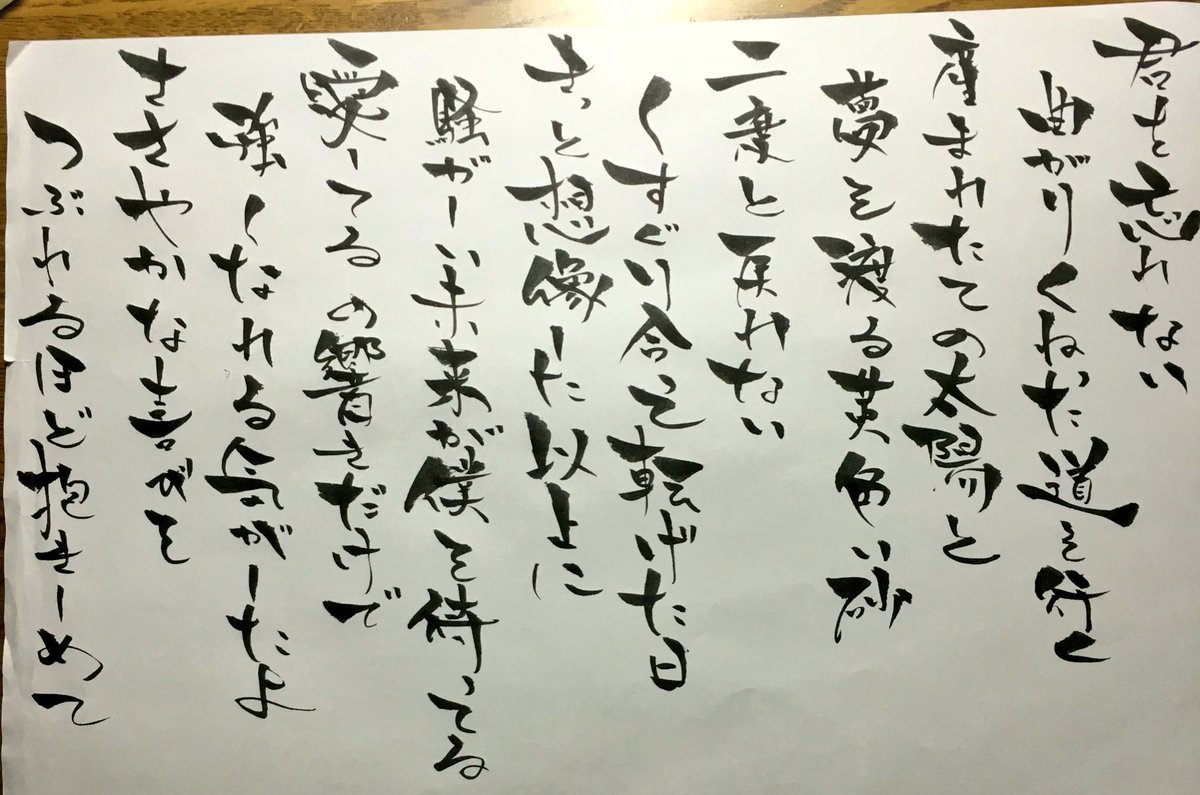 君を忘れない
曲がりくねった道を行く
産まれたての太陽と
夢を渡る黄色い砂
二度と戻れない
くすぐり合って転げた日
きっと想像した以上に
騒がしい未来が僕を待ってる
愛してるの響きだけで
強くなれる気がしたよ
ささやかな喜びを
つぶれるほど抱きしめて